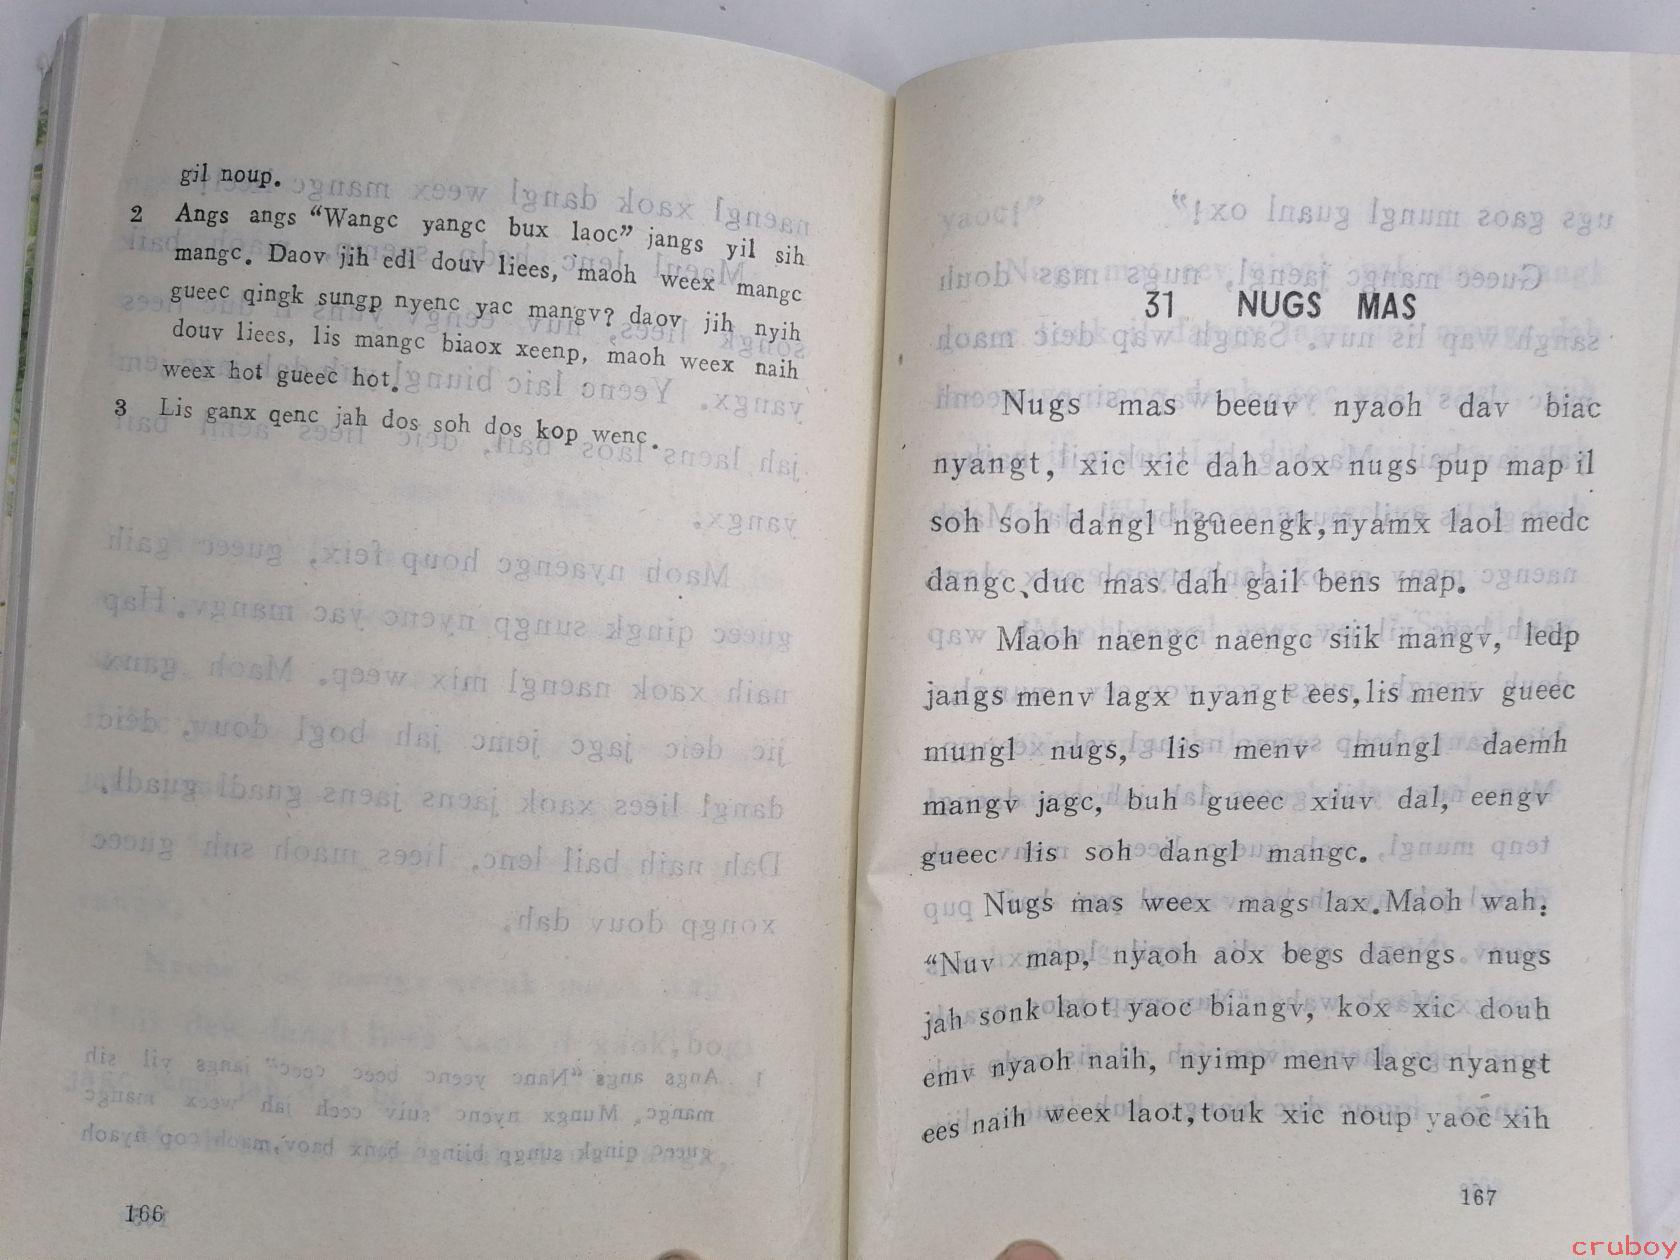 gil noup.
2 Angs angs “Wangc yangc bux laoc” jangs yil sih
mangc. Daov jih edl douv liees, maoh weex mangc
gueec qingk sungp nyenc yac mangv? daov jih nyih
douv liees, lis mangc biaox xeenp, maoh weex naih
weex hot gueec hot.
3 Lis ganx qenc jah dos soh dos kop wenc.
166
31 NUGS MAS
Nugs mas beeuv nyaoh dav biac
nyangt, xic xic dah aox nugs pup map il
soh soh dangl ngueengk, nyamx laol medc
dangc、duc mas dah gail bens map.
Maoh naengc naengc siik mangv, ledp
jangs menv lagx nyangt ees, lis menv gueec
mungl nugs, lis menv mungl daemh
mangv jagc, buh gueec xiuv dal, eengv
gueec lis soh dangl mangc.
Nugs mas weex mags lax. Maoh wah:
“Nuv map, nyaoh aox begs daengs nugs
jah sonk laot yaoc biangv, kox xic douh
emv nyaoh naih, nyimp menv lagc nyangt
ees naih weex laot, touk xic noup yaoc xih
167
cruboy